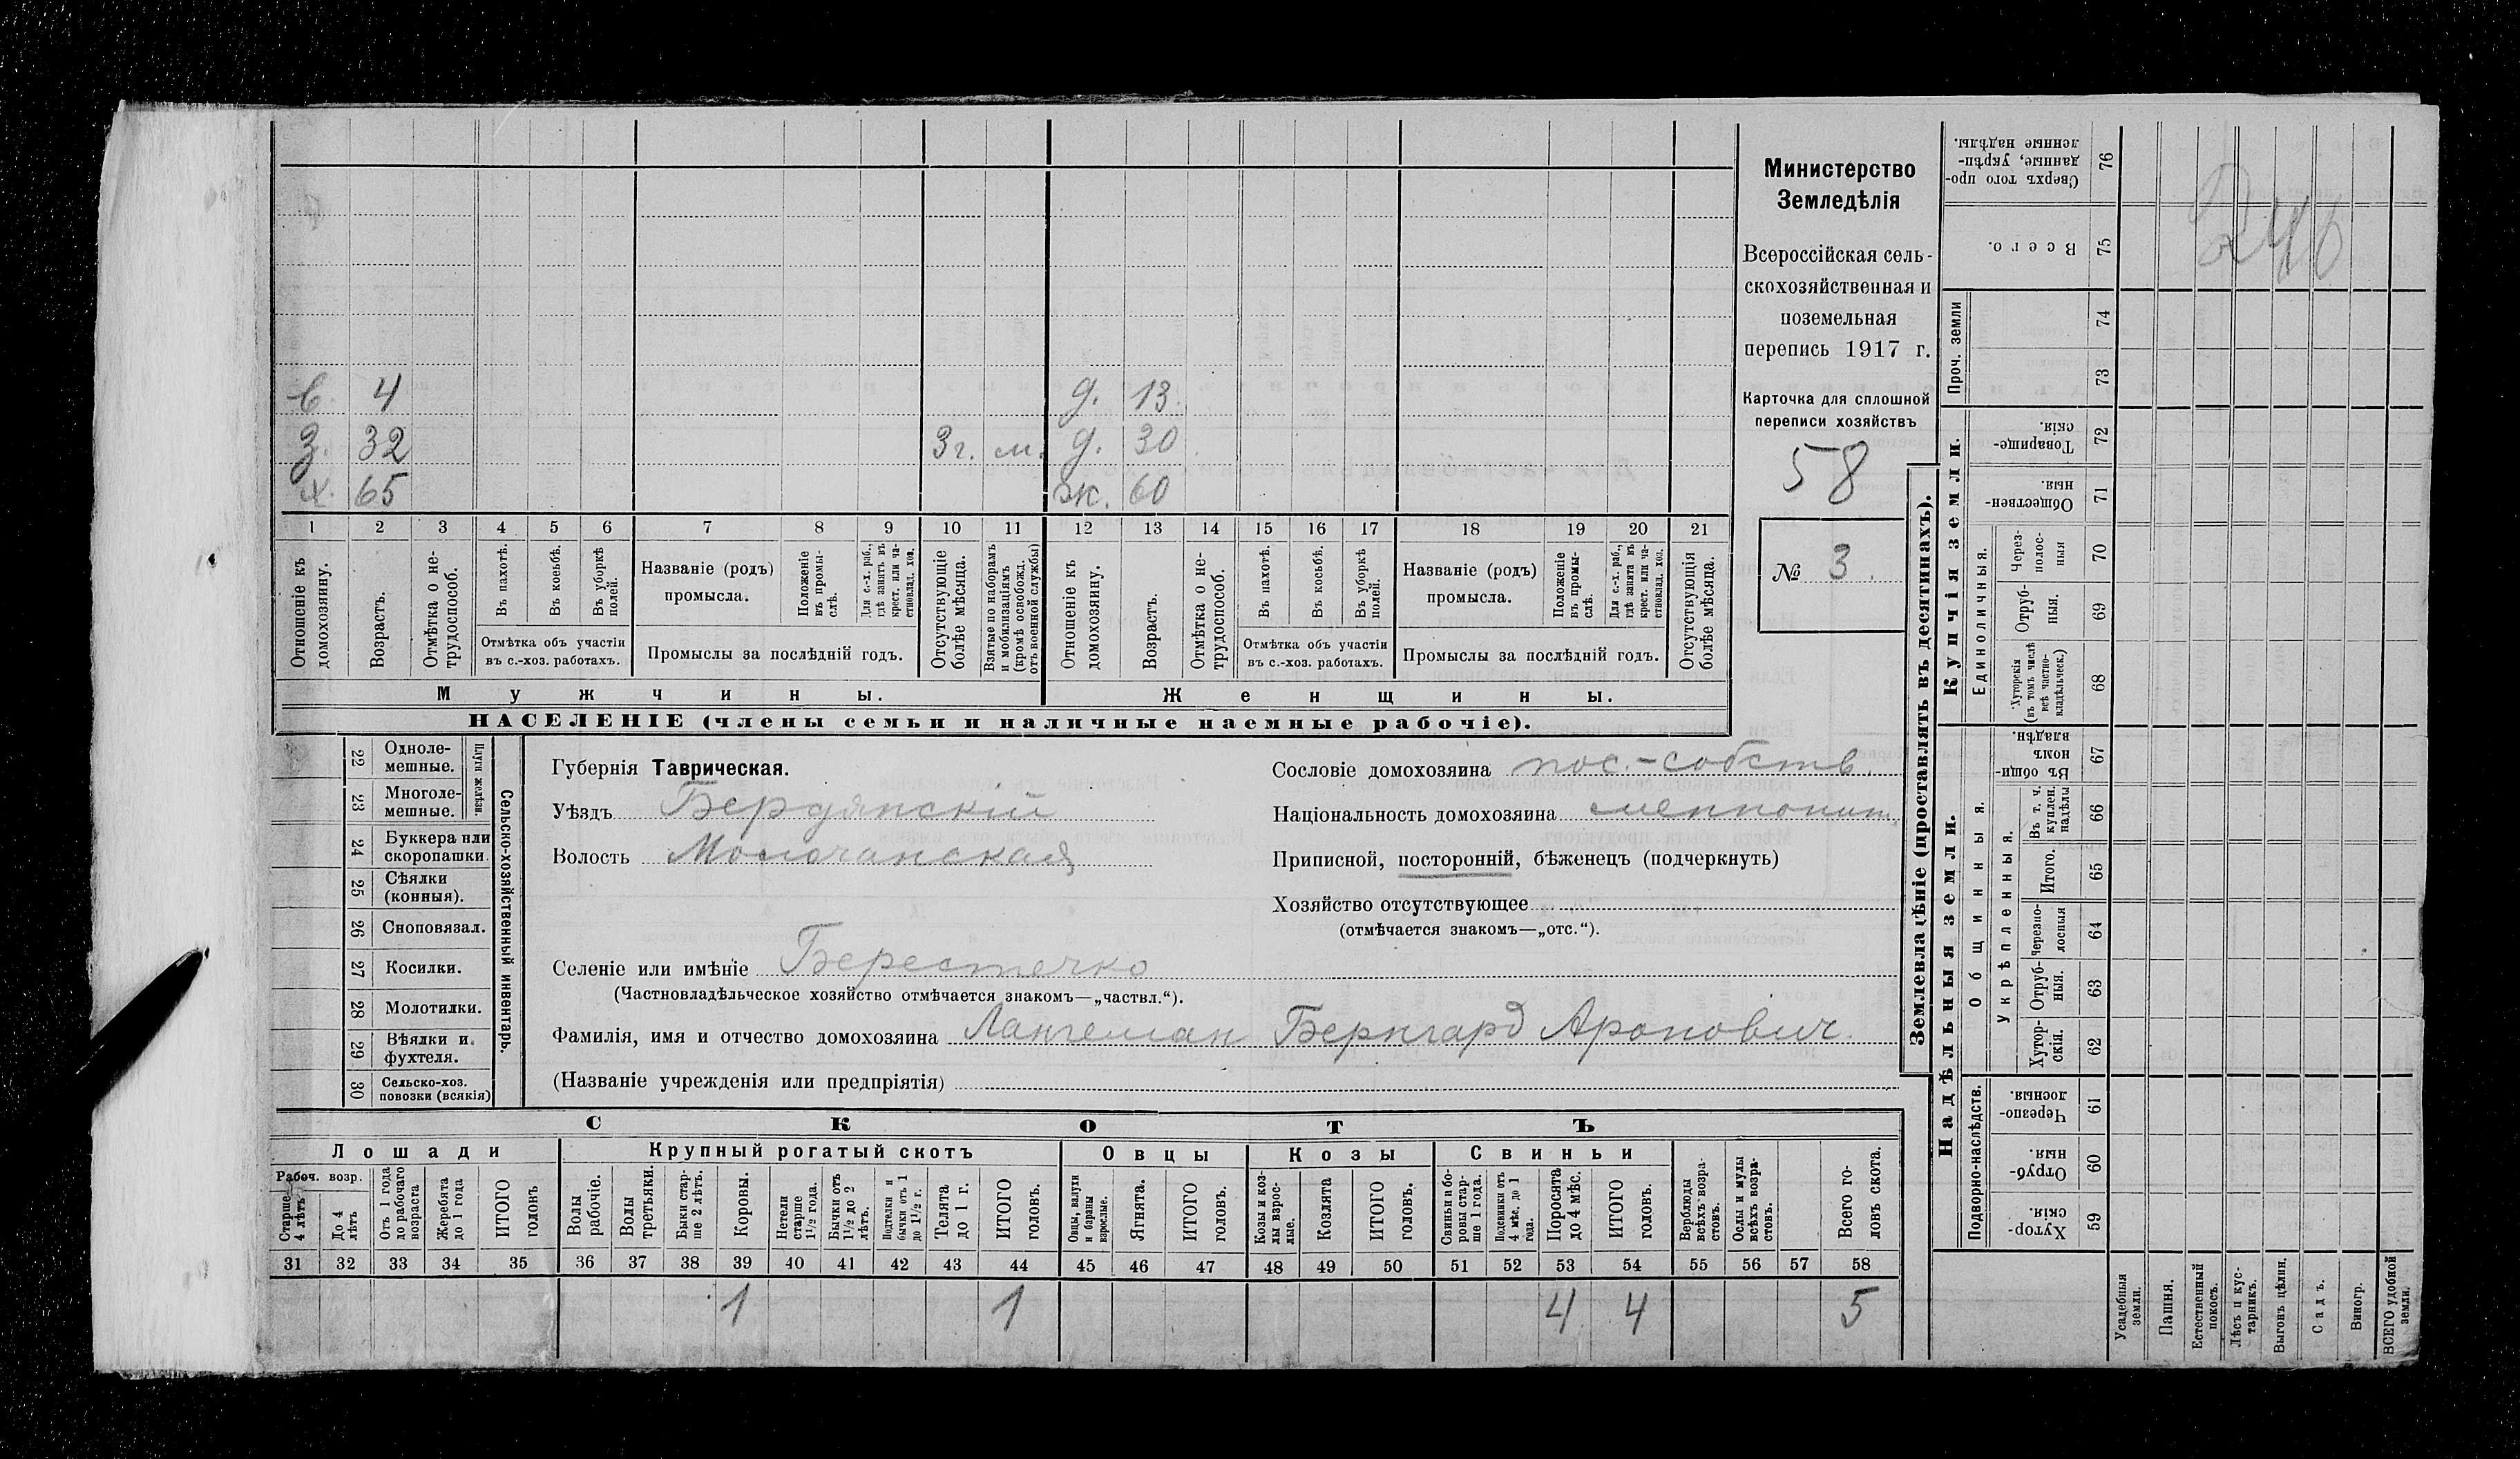 в. 4 д. 13.
з. 32 3 г. м. д. 30
х. 65 ж. 60
1 2 3 4 5 6 7 8 9 10 11 12 13 14 15 16 17 18 19 20 21
Отношеніе къ домохозяину.
Возрастъ.
Отмѣтка о нетрудоспособ.
Въ пахотѣ.
Въ косьбѣ.
Въ уборкѣ полей.
Отмѣтка объ участіи
въ с.-хоз. работахъ.
Названіе (родъ)
промысла.
Положеніе въ промыслѣ.
Для с.-х. раб., гдѣ занятъ въ крест. или частновлад. хоз.
Промыслы за послѣдній годъ.
Отсутствующіе болѣе мѣсяца.
Взятые по наборамъ и мобилизаціямъ (кромѣ освобожд. отъ военной службы)
Отношеніе къ домохозяину.
Возрастъ.
Отмѣтка о нетрудоспособ.
Въ пахотѣ.
Въ косьбѣ.
Въ уборкѣ полей.
Отмѣтка объ участіи
въ с.-хоз. работахъ.
Названіе (родъ)
промысла.
Положеніе въ промыслѣ.
Для с.-х. раб., гдѣ занята въ крест. или частновлад. хоз.
Промыслы за послѣдній годъ.
Отсутствующія болѣе мѣсяца.
Мужчины. Женщины.
НАСЕЛЕНІЕ (члены семьи и наличные наемные рабочіе).
Министерство
Земледѣлія
Всероссійская сель-
скохозяйственная и
поземельная
перепись 1917 г.
Карточка для сплошной
переписи хозяйствъ
58
№ 3.
Сельско-хозяйственный инвентарь.
Плуги желѣзн.
22 Одноле-
мешные.
23 Многоле-
мешные.
24 Буккера или
скоропашки.
25 Сѣялки
(конныя).
26 Сноповязал.
27 Косилки.
28 Молотилки.
29 Вѣялки и
фухтеля.
30 Сельско-хоз.
повозки (всякія)
Губернія Таврическая.
Уѣздъ Бердянскій
Волость Молочанская
Сословіе домохозяина пос.-собств.
Національность домохозяина меннонит.
Приписной, посторонній, бѣженецъ (подчеркнуть)
Хозяйство отсутствующее
(отмѣчается знакомъ—„отс.“).
Селеніе или имѣніе Берестечко
(Частновладѣльческое хозяйство отмѣчается знакомъ—„частвл.“).
Фамилія, имя и отчество домохозяина Лангеман Бернгард Аронович.
(Названіе учрежденія или предпріятія)
СКОТЪ
Лошади Крупный рогатый скотъ Овцы Козы Свиньи
Рабоч. возр.
Старше 4 лѣтъ
До 4 лѣтъ
Отъ 1 года до рабочаго возраста
Жеребята до 1 года
ИТОГО головъ
Волы рабочіе.
Волы третьяки.
Быки старше 2 лѣтъ.
Коровы.
Нетели старше 1½ года.
Бычки отъ 1½ до 2 лѣтъ.
Подтелки и бычки отъ 1 до 1½ г.
Телята до 1 г.
ИТОГО головъ.
Овцы, валухи и бараны взрослые.
Ягнята.
ИТОГО головъ.
Козы и козлы взрослые.
Козлята
ИТОГО головъ.
Свиньи и боровы старше 1 года.
Подсвинки отъ 4 мѣс. до 1 года.
Поросята до 4 мѣс.
ИТОГО головъ.
Верблюды всѣхъ возрастовъ.
Ослы и мулы всѣхъ возрастовъ.
Всего головъ скота.
31 32 33 34 35 36 37 38 39 40 41 42 43 44 45 46 47 48 49 50 51 52 53 54 55 56 57 58
1 1 4 4 5
Землевладѣніе (проставлять въ десятинахъ).
Купчія земли.
Надѣльныя земли.
Сверхъ того проданные, укрѣпленные надѣлы. 76
Всего. 75
Проч. земли
74
73
Товарищескія. 72
Общественныя. 71
Единоличныя.
Черезполосныя 70
Отрубныя. 69
Хуторскія (въ томъ числѣ всѣ частновладѣльческ.) 68
Общинныя.
Въ общинномъ владѣн. 67
Укрѣпленныя.
Въ т. ч. куплен. надѣлы 66
Итого. 65
Черезполосныя 64
Отрубныя. 63
Хуторскія. 62
Подворно-наслѣдств.
Черезполосныя. 61
Отрубныя. 60
Хуторскія. 59
Усадебныя земли.
Пашня.
Естественный покосъ.
Лѣсъ и кустарникъ.
Выгонъ цѣлин.
Садъ.
Виногр.
ВСЕГО удобной земли.
246